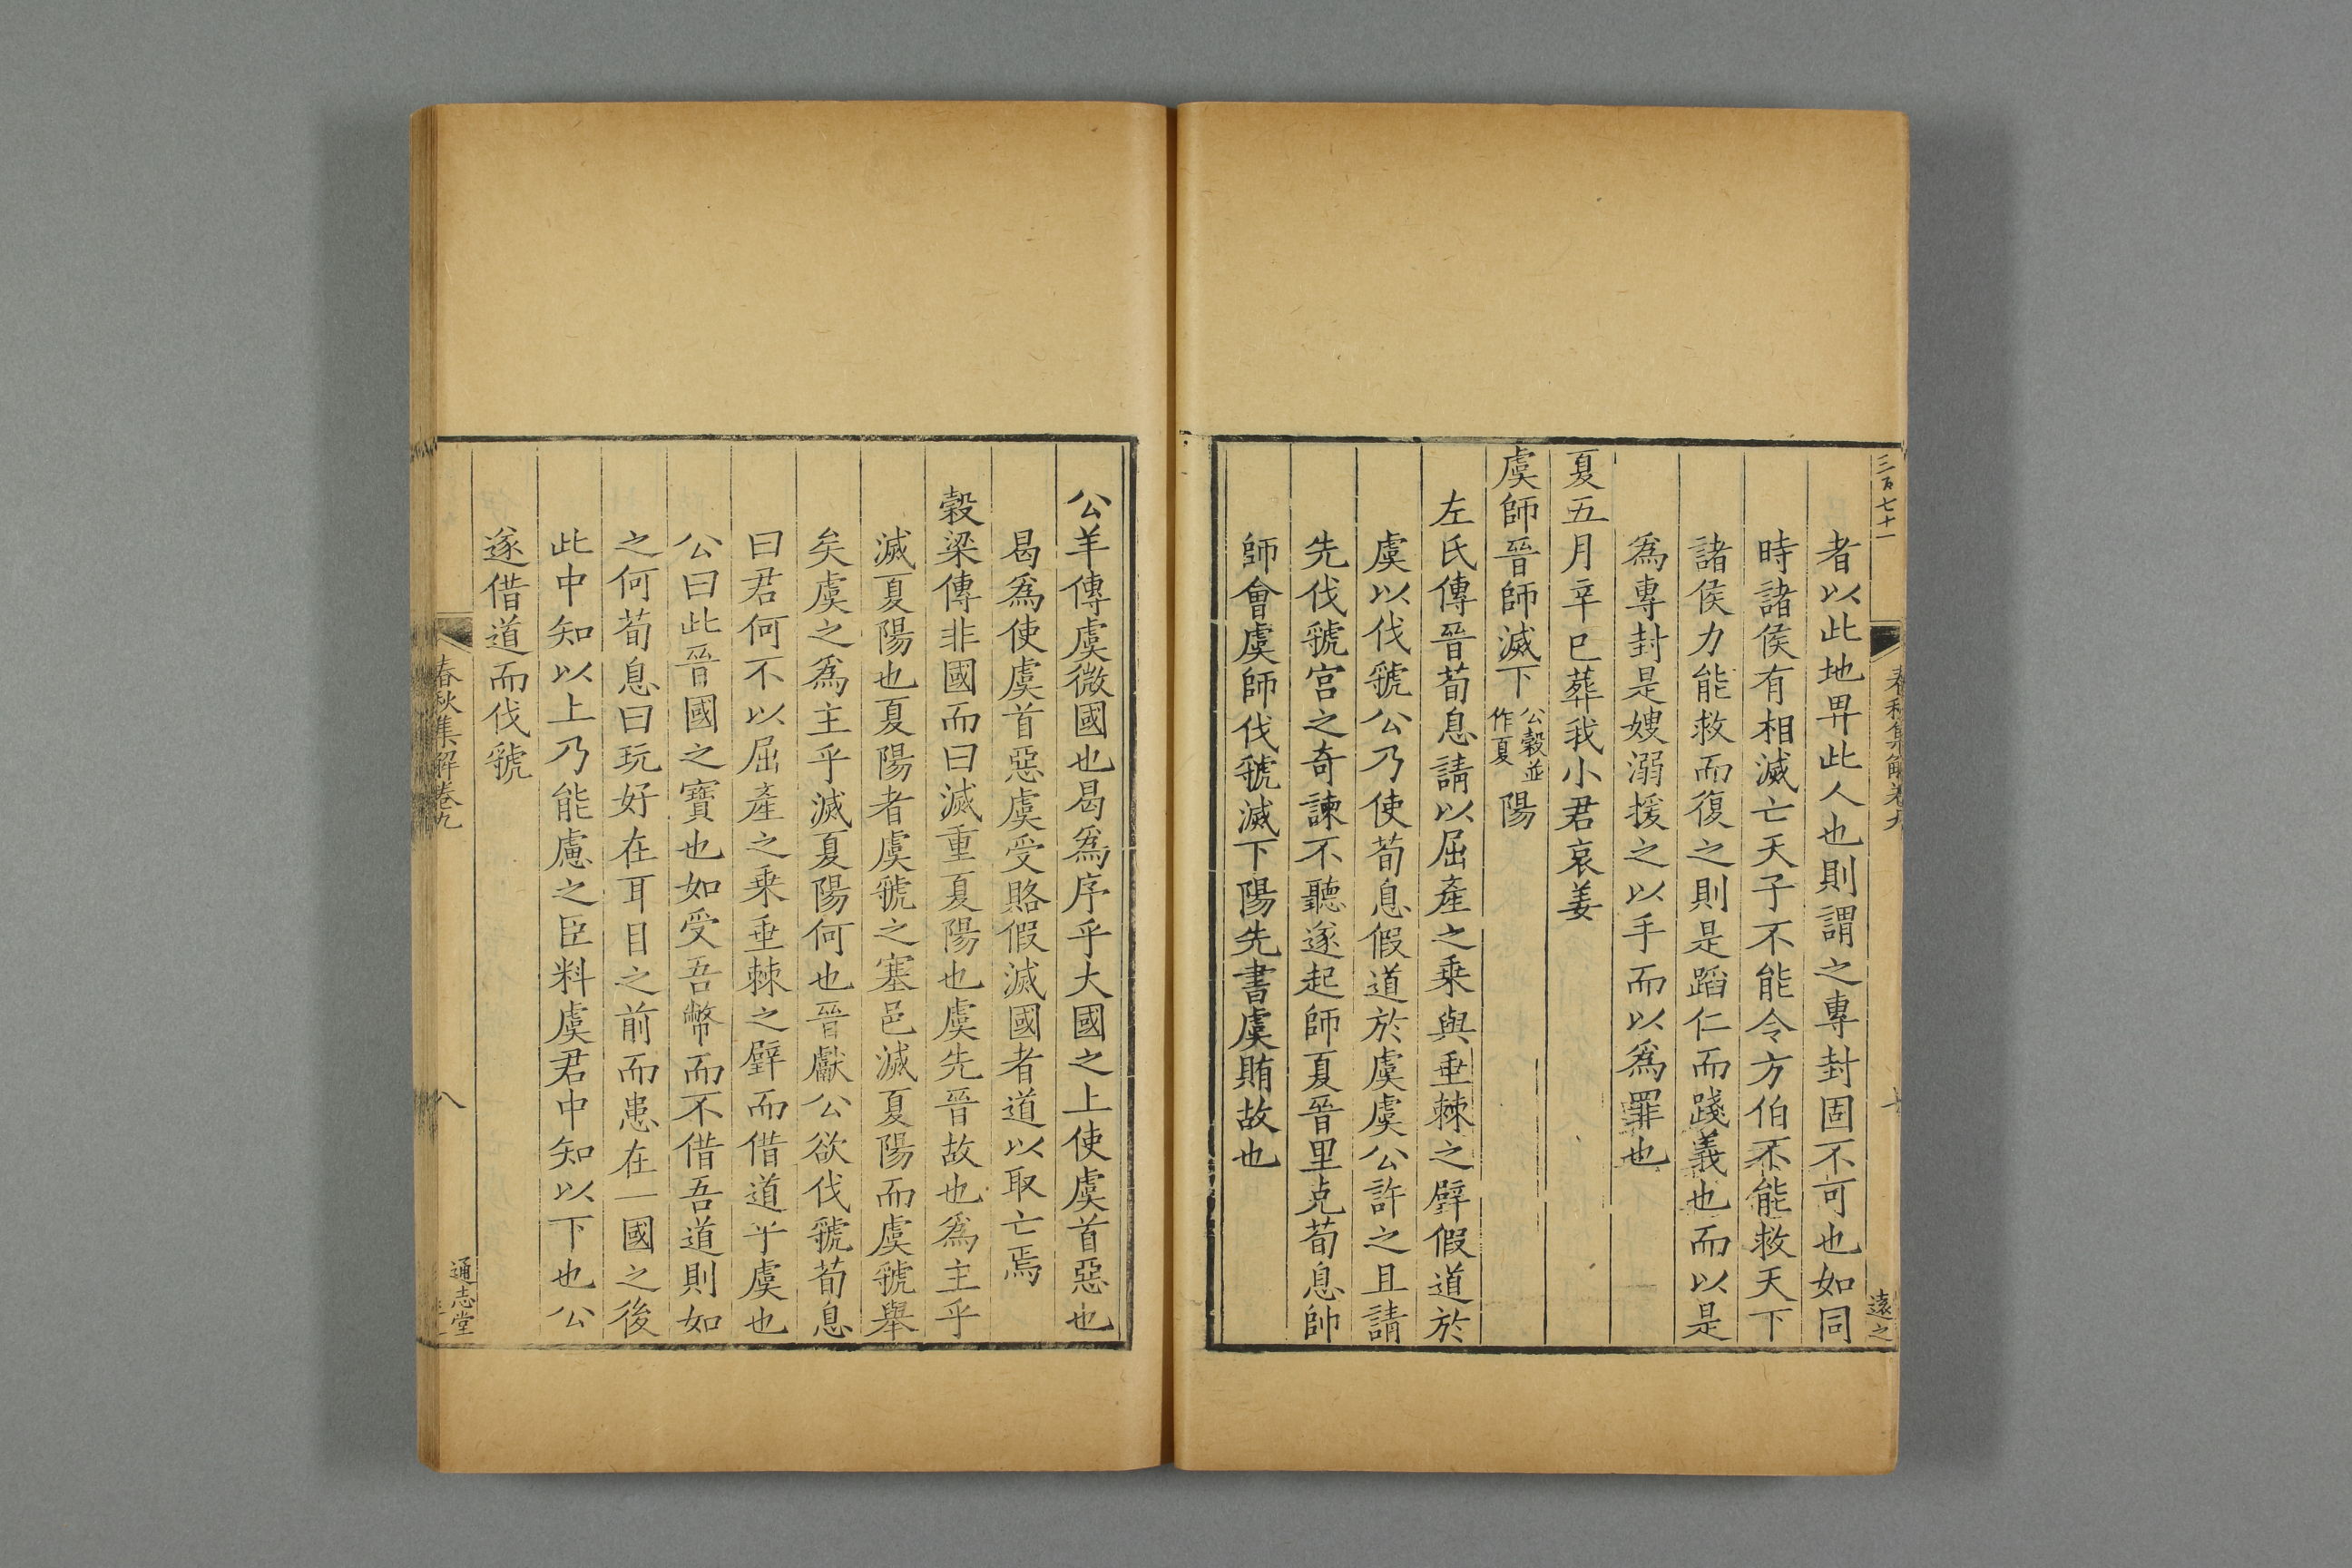 三百七十一
春秋集解卷九
遠之
者以此地畀此人也則謂之專封固不可也如同
時諸侯有相滅亡天子不能令方伯不能救天下
諸侯力能救而復之則是蹈仁而踐義也而以是
爲專封是嫂溺援之以手而以爲罪也
夏五月辛巳葬我小君哀姜
虞師晉師滅下公穀並作夏陽
左氏傳晉荀息請以屈產之乗與垂棘之璧假道於
虞以伐虢公乃使荀息假道於虞虞公許之且請
先伐虢宮之奇諫不聽遂起師夏晉里克荀息帥
師會虞師伐虢滅下陽先書虞賄故也
公羊傳虞微國也曷爲序乎大國之上使虞首惡也
曷爲使虞首惡虞受賂假滅國者道以取亡焉
穀梁傳非國而曰滅重夏陽也虞先晉故也爲主乎
滅夏陽也夏陽者虞虢之塞邑滅夏陽而虞虢舉
矣虞之爲主乎滅夏陽何也晉獻公欲伐虢荀息
曰君何不以屈產之乗垂棘之璧而借道乎虞也
公曰此晉國之寶也如受吾幣而不借吾道則如
之何荀息曰玩好在耳目之前而患在一國之後
此中知以上乃能慮之臣料虞君中知以下也公
遂借道而伐虢
春秋集解卷九
八
通志堂